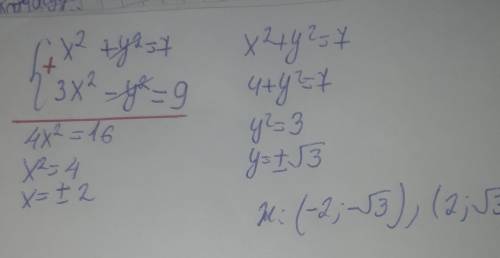 x² + y² = 7
3x² - y² = 9
4x² = 16
x² = 4
x = ± 2
x² + y² = 7
4 + y² = 7
y² = 3
y = ± √3
(-2; -√3), (2; √3